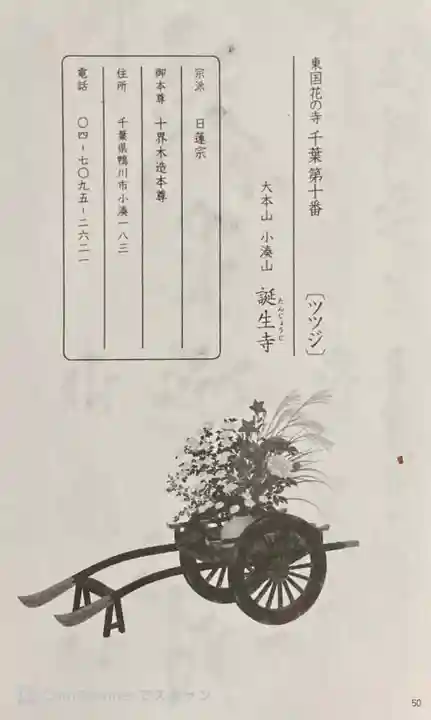 東国花の寺 千葉 第十番 〔ツツジ〕
大本山 小湊山 誕生寺
たんじょうじ
宗派 日蓮宗
御本尊 十界木造本尊
住所 千葉県鴨川市小湊一八三
電話 〇四-七〇九五-二六二一
でスキャン
50